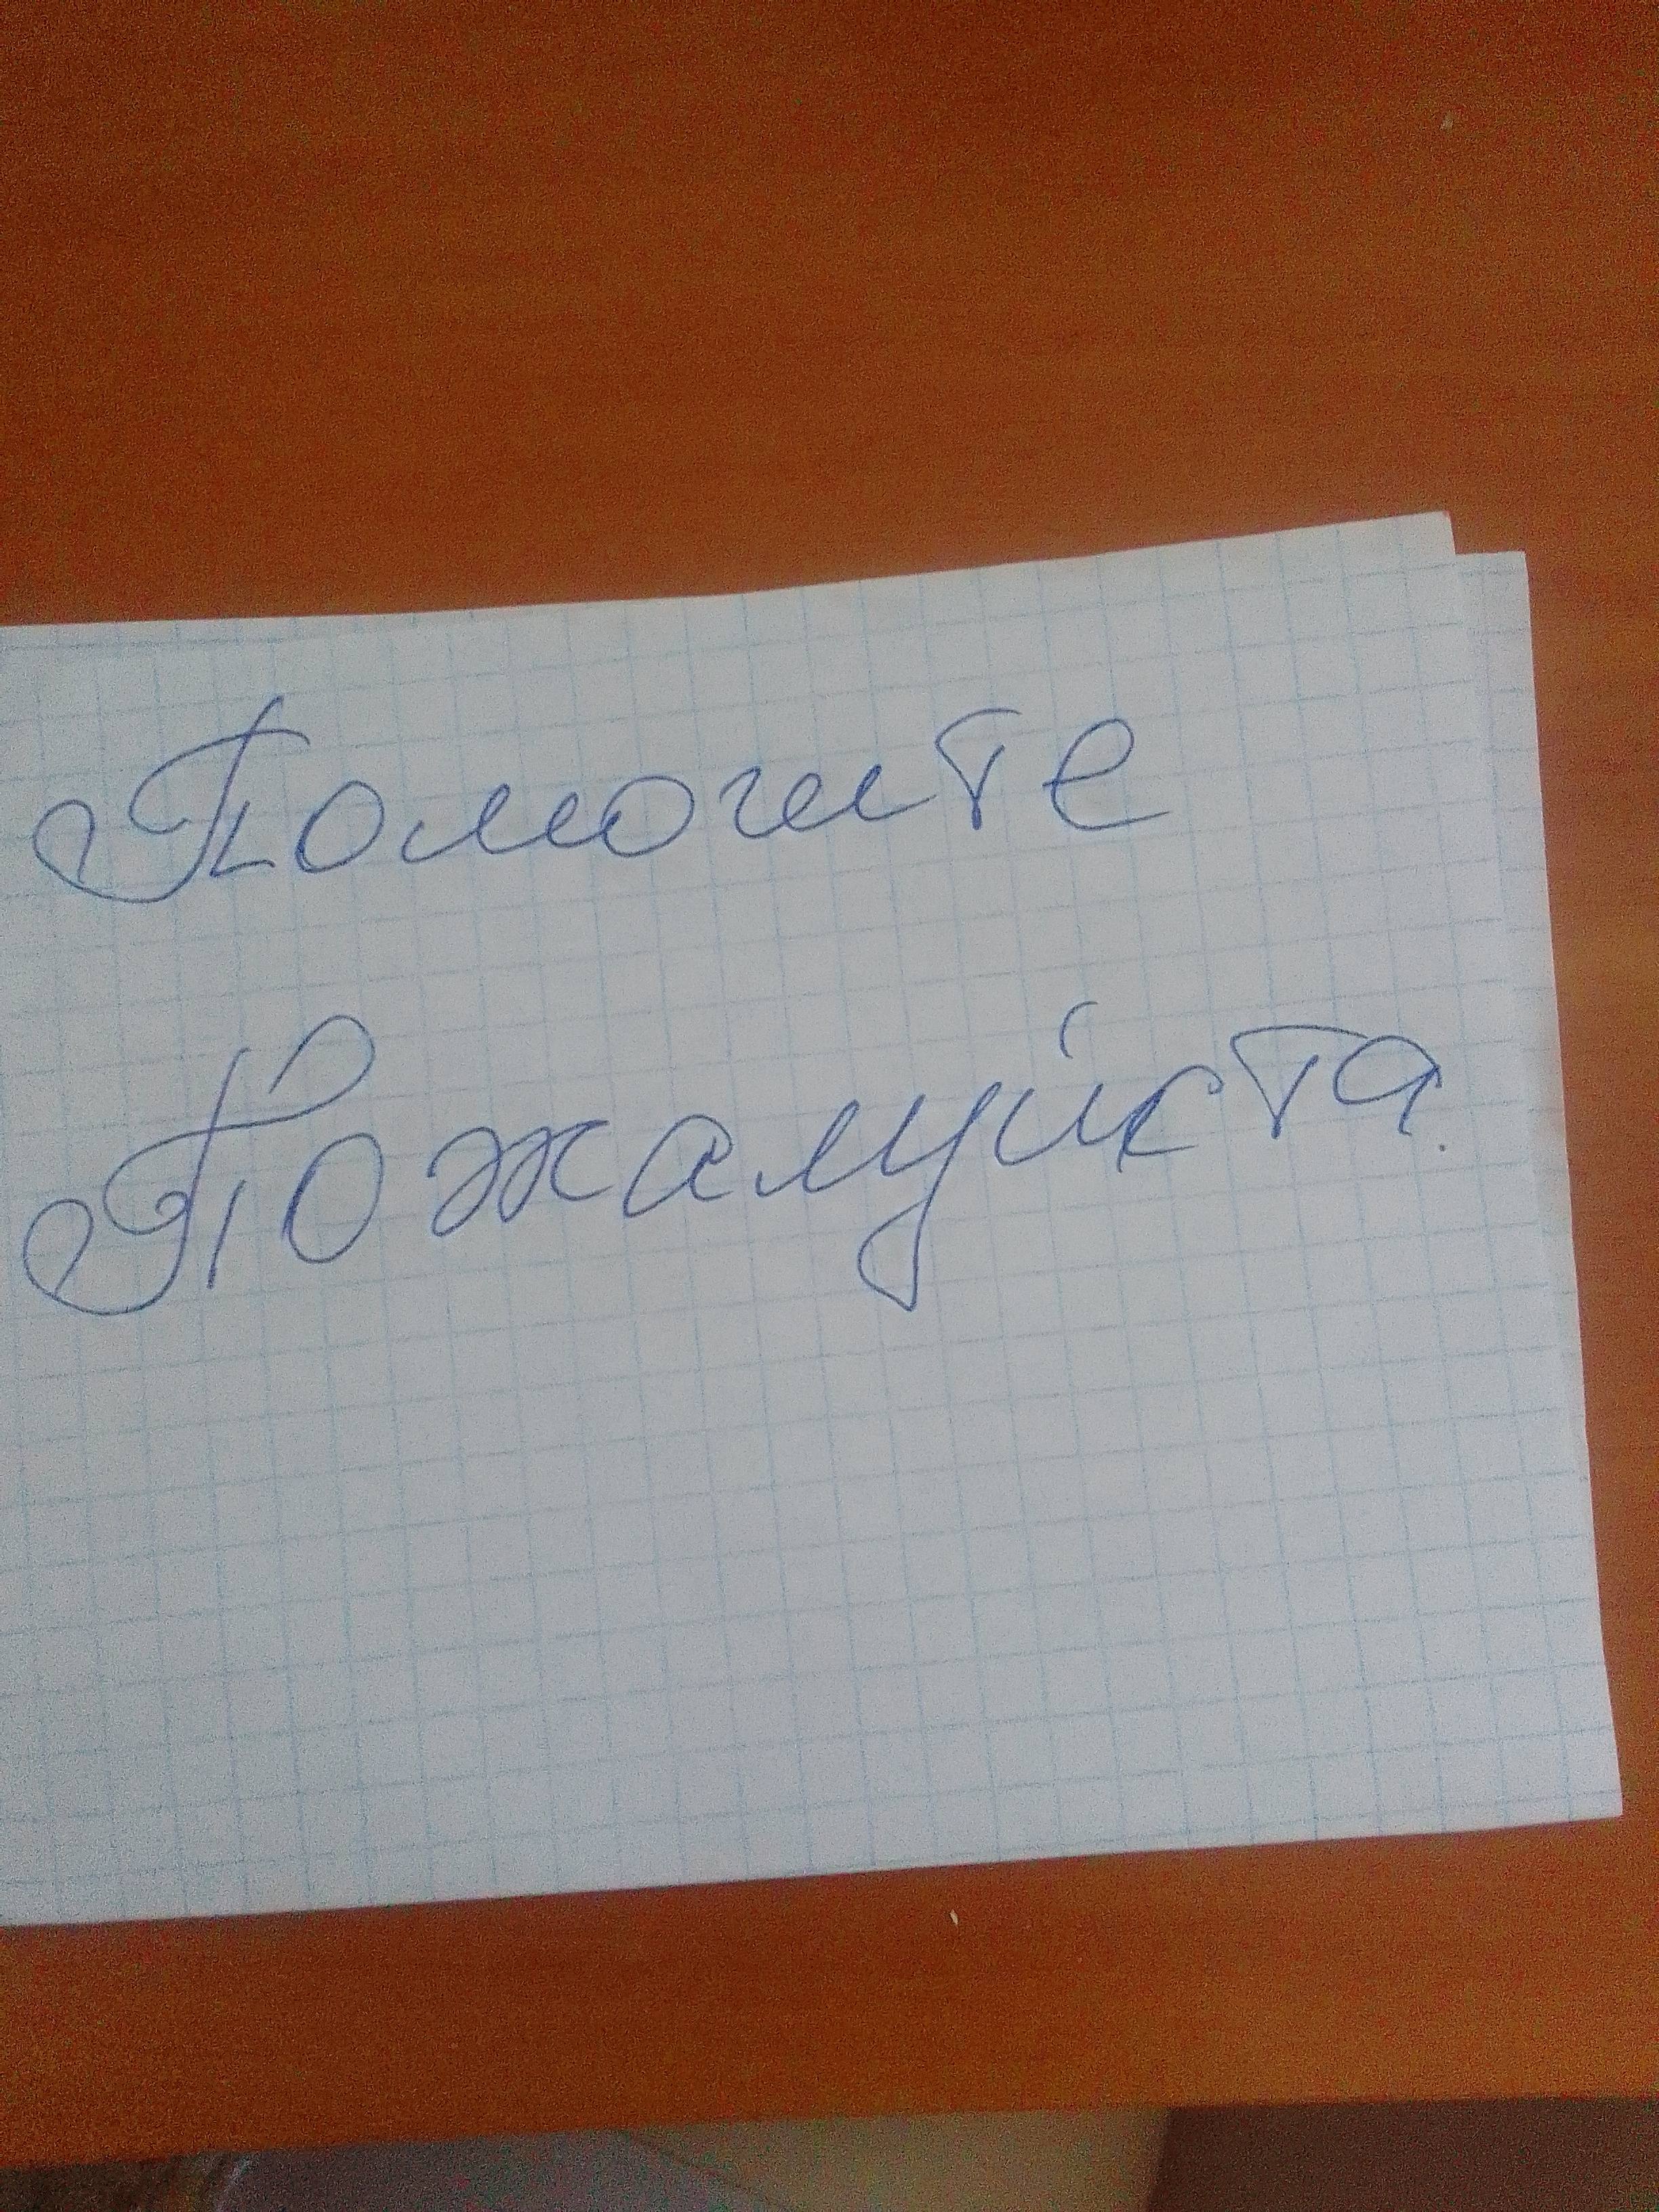 Помогите
Пожалуйста.